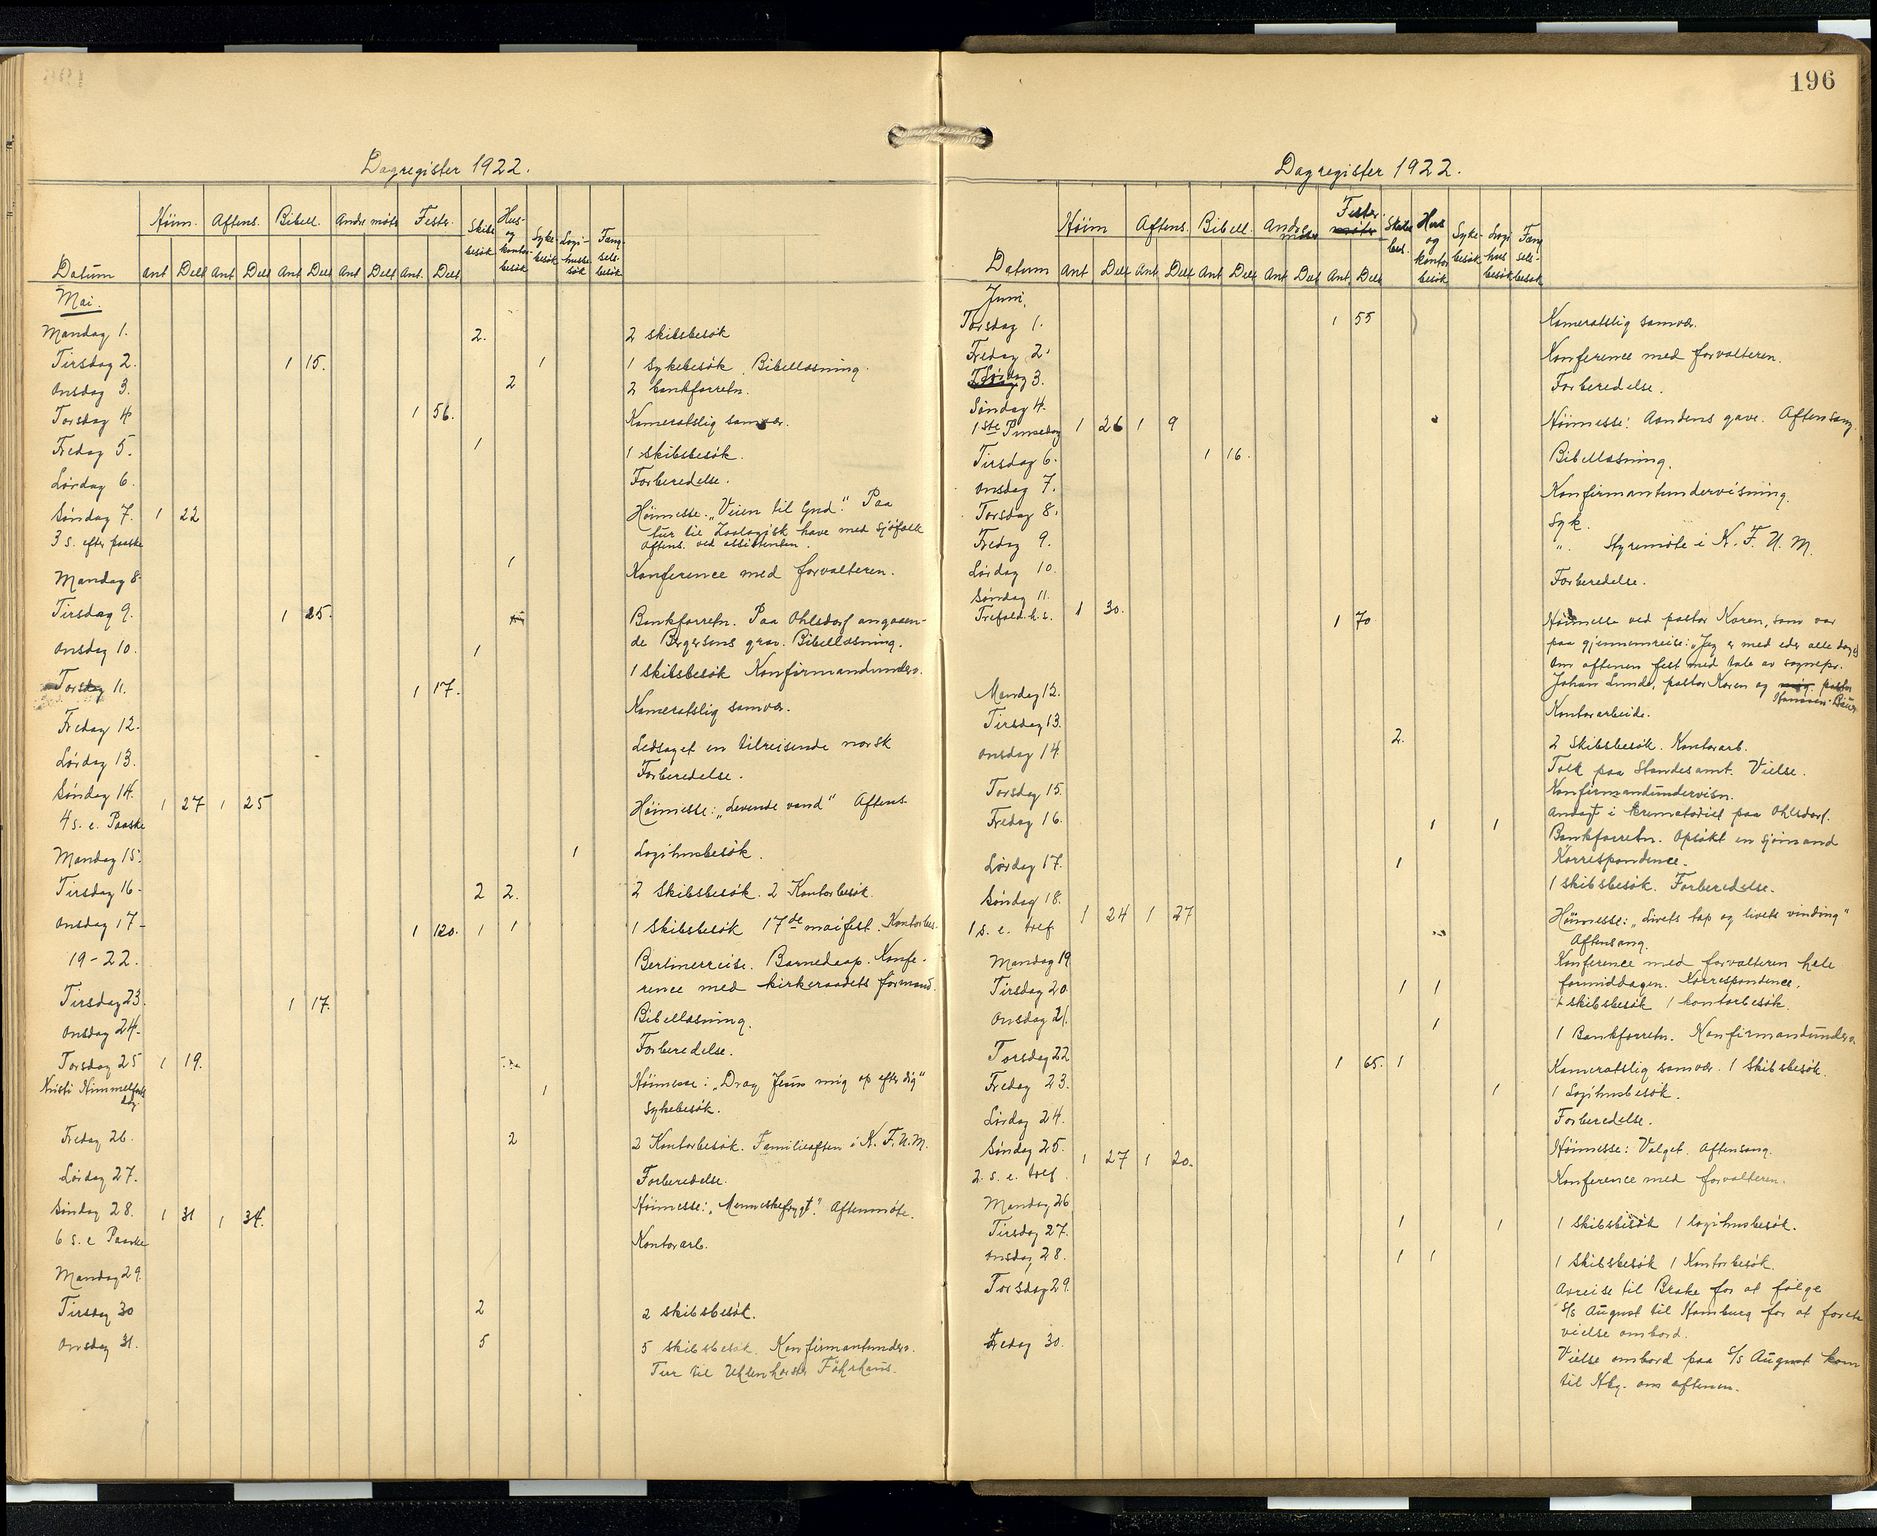 196
Dagregister 1922.
Høim. Aftens. Bibell. Andre møter Fester. Skibsbesøk Hus- og kontorbesøk Sykebesøk Logihusbesøk Fængselsbesøk
Datum Ant Delt Ant Delt Ant Delt Ant Delt Ant. Delt
Mai.
Mandag 1. 2. 2 skibsbesøk
Tirsdag 2. 1 15. 1 1 Sykebesøk. Bibellæsning.
Onsdag 3. 2 2 bankforretn.
Torsdag 4 1 56. Kameratslig samvær.
Fredag 5. 1 1 skibsbesøk.
Lørdag 6. Forberedelse.
Søndag 7. 1 22 Høimesse: „Veien til Gud". Paa
3 s. efter paaske tur til Zoologisk have med sjøfolk
Aftens. ved assistenten.
Mandag 8. 1 Konference med forvalteren.
Tirsdag 9. 1 25. Bankforretn. Paa Ohlsdorf angaaen-
de Bergersens grav. Bibellæsning.
Onsdag 10. 1 1 skibsbesøk Konfirmandunderv.
Torsdag 11. 1 17. Kameratslig samvær.
Fredag 12. Ledsaget en tilreisende norsk
Lørdag 13. Forberedelse.
Søndag 14. 1 27 1 25 Høimesse: „Levende vand" Aftens.
4 s. e. Paaske
Mandag 15. 1 Logihusbesøk.
Tirsdag 16. 2 2. 2 Skibsbesøk. 2 Kontorbesøk.
Onsdag 17. 1 120. 1 1 1 Skibsbesøk 17de maifest. Kontorbes.
19-22. Berlinerreise. Barnedaap. Konfe-
rence med kirkeraadets formand.
Tirsdag 23. 1 17. Bibellæsning.
Onsdag 24. Forberedelse.
Torsdag 25 1 19. Høimesse: „Drag Jesus mig op efter dig"
Kristi Himmelfarts dag. 1 Sykebesøk.
Fredag 26. 2 2 Kontorbesøk. Familieaften i K. F. U. M.
Lørdag 27. Forberedelse.
Søndag 28. 1 31 1 34. Høimesse: „Menneskefrygt". Aftenmøte.
6 s. e Paaske Kontorarb.
Mandag 29.
Tirsdag 30 2 2 skibsbesøk.
Onsdag 31. 5 5 skibsbesøk. Konfirmantunderv.
Tur til Uhlenhorster Fährhaus.
Dagregister 1922.
Høim Aftens. Bibell. Andre møter Fester. møter Skibsbes. Hus og kontorbesøk Sykebesøk Logihusbesøk Fængselsbesøk
Datum Ant Delt Ant Delt Ant Delt Ant Delt Ant. Delt
Juni.
Torsdag 1. 1 55 Kameratslig samvær.
Fredag 2. Konference med forvalteren.
Lørdag 3. Forberedelse.
Søndag 4.
1ste Pinsedag 1 26 1 9 Høimesse: Aandens gave. Aftensang.
Tirsdag 6. 1 16. Bibellæsning.
Onsdag 7. Konfirmantundervisning.
Torsdag 8. Syk.
Fredag 9. „ Styremøte i K. F. U. M.
Lørdag 10. Forberedelse.
Søndag 11.
Trefold.h.s. 1 30. 1 70 Høimesse ved pastor Koren, som var
paa gjennemreise: „Jeg er med eder alle dage"
Om aftenen fest med tale av sognepr.
Mandag 12. Johan Lunde, pastor Koren og pastor
Tirsdag 13. Kontorarbeide.
Onsdag 14 2. 2 Skibsbesøk. Kontorarb.
Tolk paa Standesamt. Vielse.
Torsdag 15. Konfirmandundervisn.
Fredag 16. 1 1 Andagt i krematoriet paa Ohlsdorf.
Bankforretn. Opsøkt en sjømand
Korrespondence.
Lørdag 17. 1 1 skibsbesøk. Forberedelse.
Søndag 18. 1 24 1 27 Høimesse: „Livets tap og livets vinding"
1 s. e. tref Aftensang.
Mandag 19 Konference med forvalteren hele
formiddagen. Korrespondence.
Tirsdag 20. 1 1 1 skibsbesøk 1 kontorbesøk.
Onsdag 21. 1 1 Bankforretn. Konfirmandunderv.
Torsdag 22 1 65. 1 Kameratslig samvær. 1 Skibsbesøk.
Fredag 23. 1 1 Logihusbesøk.
Lørdag 24. Forberedelse.
Søndag 25. 1 27 1 20. Høimesse: Valget. Aftensang.
2. s. e. tref.
Mandag 26 Konference med forvalteren.
Tirsdag 27. 1 1 1 skibsbesøk 1 logihusbesøk.
Onsdag 28. 1 1 1 skibsbesøk 1 Kontorbesøk.
Torsdag 29. Avreise til Brake for at følge
S/s August til Hamburg for at foreta
vielse ombord.
Fredag 30. Vielse ombord paa S/s August kom
til Hbg. om aftenen.